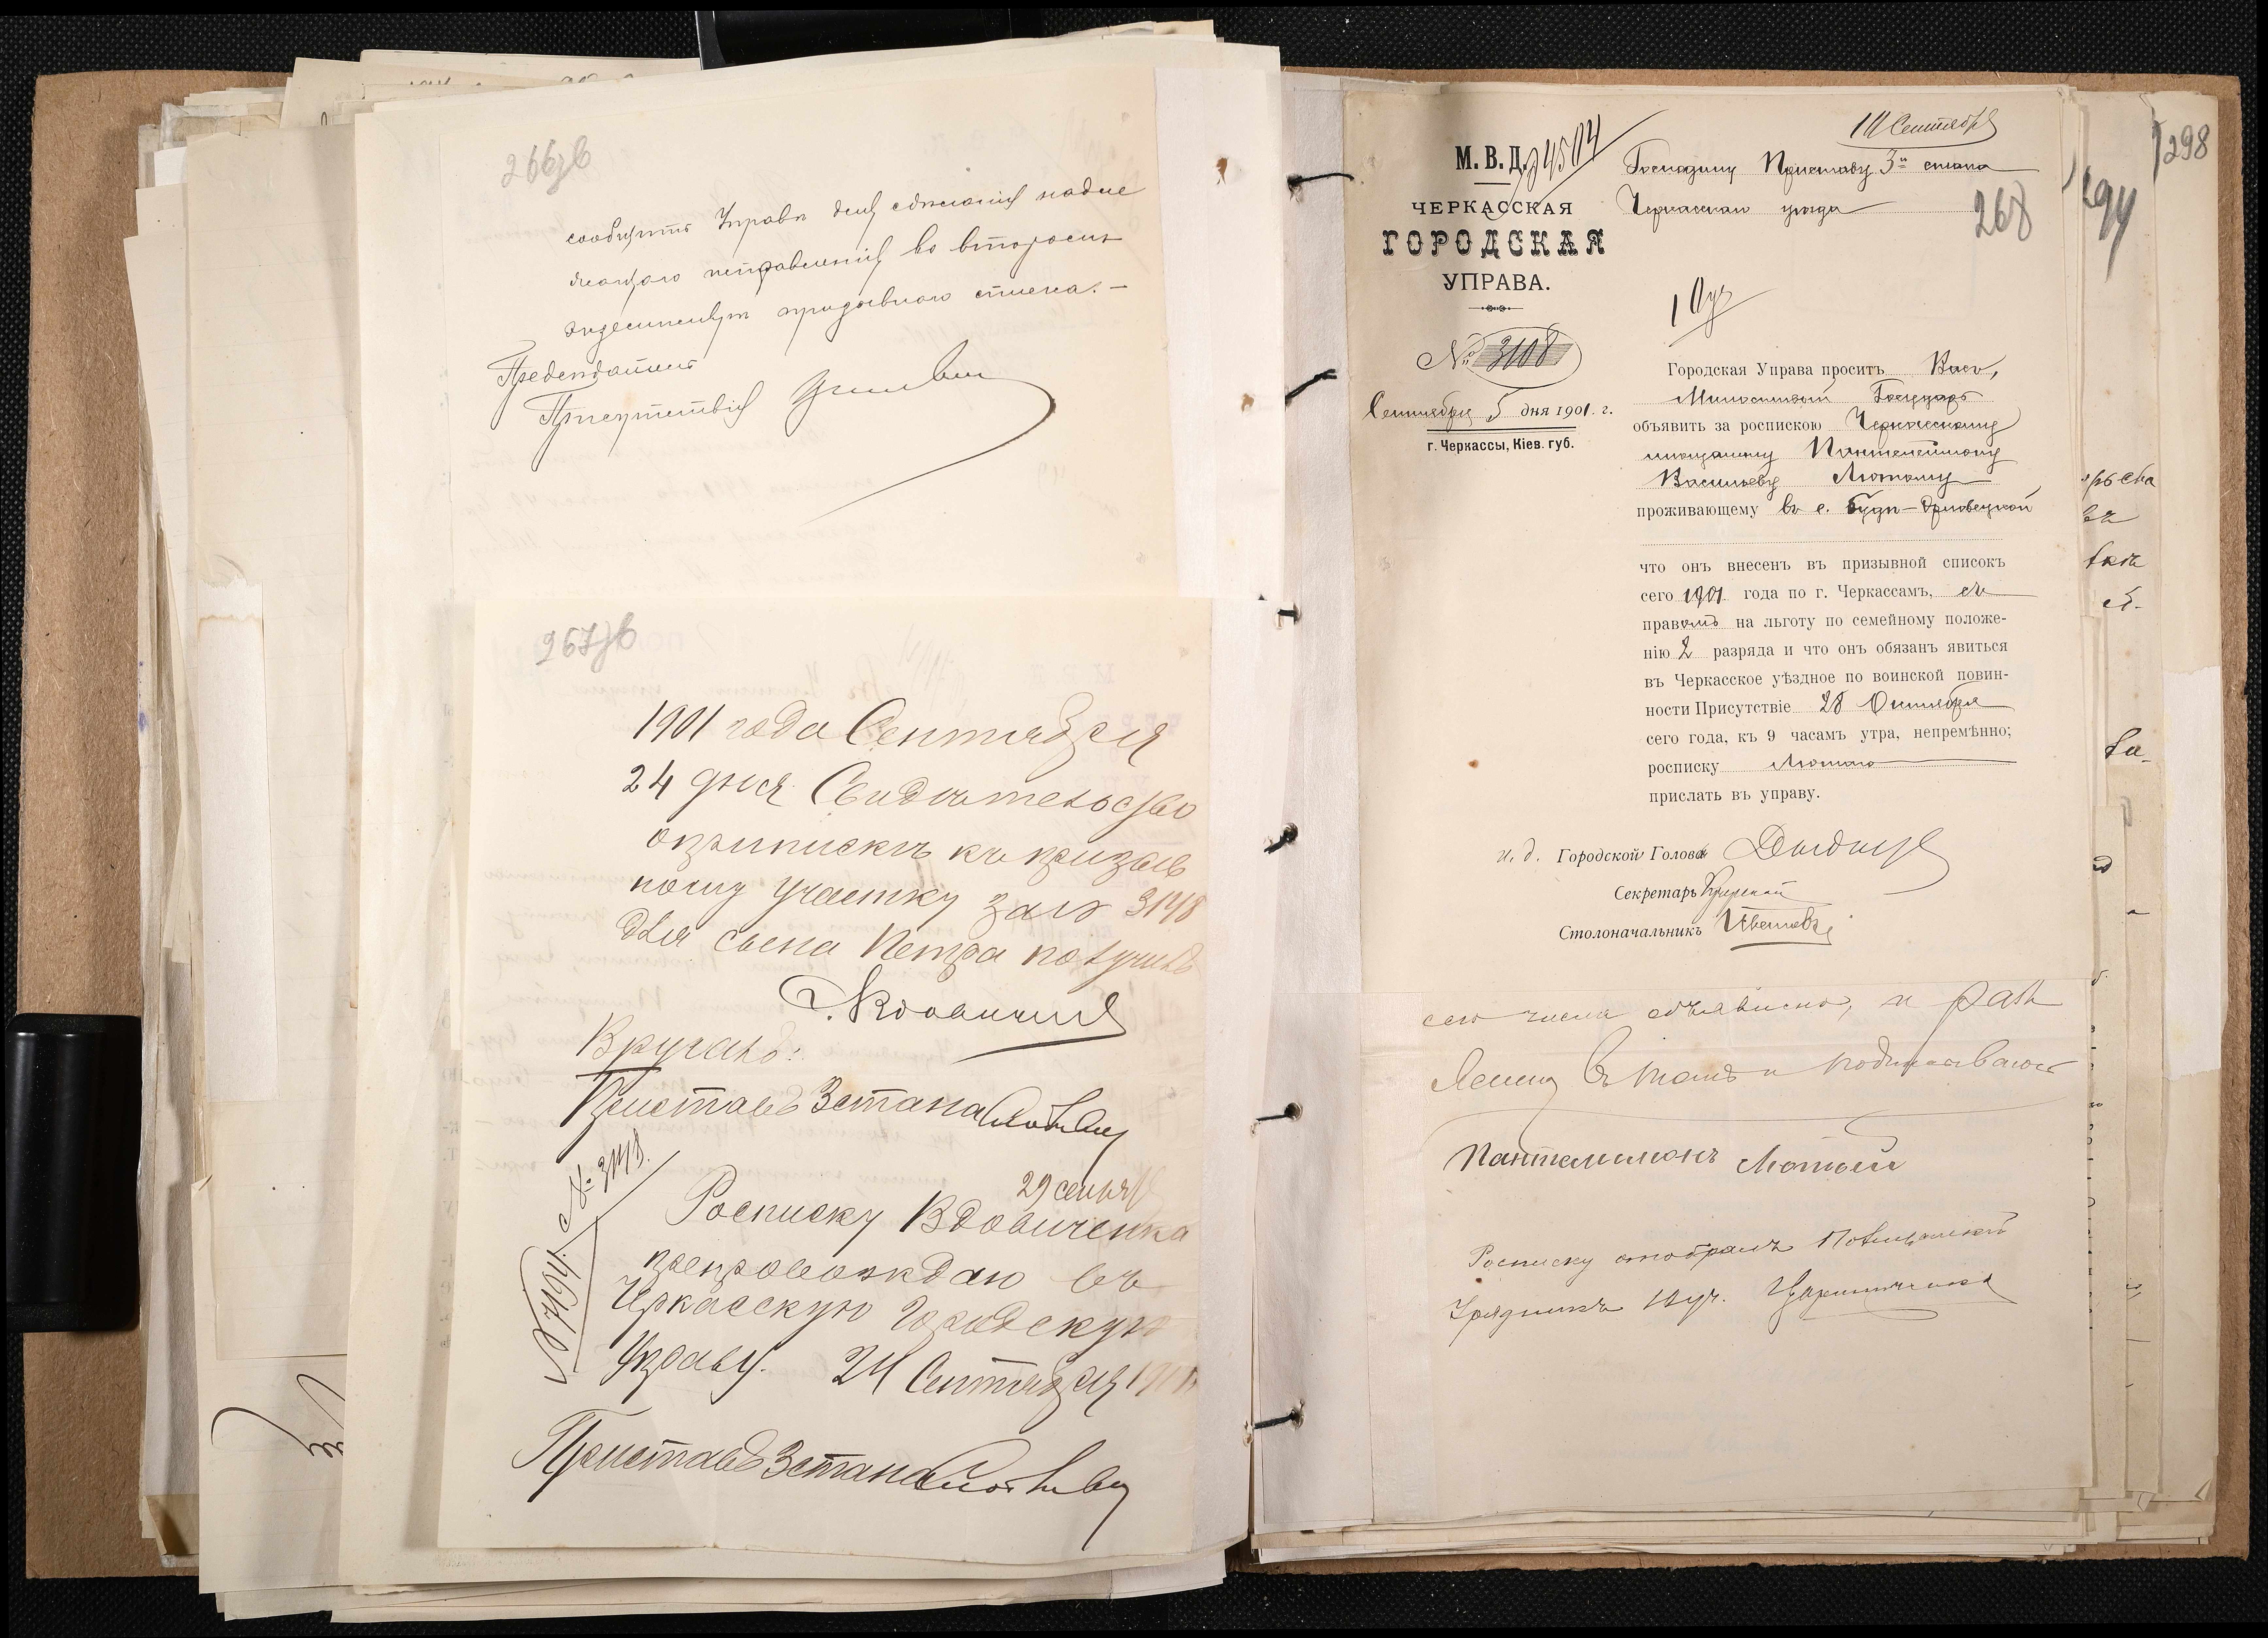 266 об
сообщить Управѣ для сдѣланія надле
жащаго исправленія во второмъ
экземплярѣ призывнаго списка. —
Предсѣдатель
Присутствія
267 об
1901 года Сентября
24 дня Свидѣтельство
о припискѣ къ призыв
ному участку за № 3148
для сына Петра получилъ
Вручалъ:
Приставъ 3 стана
№ 3148.
29 сентяб
Росписку Вдовиченка
препровождаю въ
Черкасскую Городскую
Управу. 24 Сентября 1901
Приставъ 3 стана
М. В. Д.
ЧЕРКАССКАЯ
ГОРОДСКАЯ
УПРАВА.
№ 3108
Сентября 5 дня 1901. г.
г. Черкассы, Кіев. губ.
Сентября
4504
Господину Приставу 3го стана
Черкасскаго уѣзда
268
1 Уч
Городская Управа проситъ Васъ,
Милостивый Государь
объявить за роспискою Черкасскому
мѣщанину Пантелеймону
Васильеву Лютому
проживающему въ с. Буда-Орловецкой
что онъ внесенъ въ призывной списокъ
сего 1901 года по г. Черкассамъ, съ
правомъ на льготу по семейному положе-
нію 2 разряда и что онъ обязанъ явиться
въ Черкасское уѣздное по воинской повин-
ности Присутствіе 28 Октября
сего года, къ 9 часамъ утра, непремѣнно;
росписку Лютого
прислать въ управу.
и. д. Городской Голова
Секретарь
Столоначальникъ
сего числа объявлено, и
въ томъ и подписываюсь
Пантелимонъ Лютый
Росписку отобралъ Полицейскій
Урядникъ 10 уч.
294
298